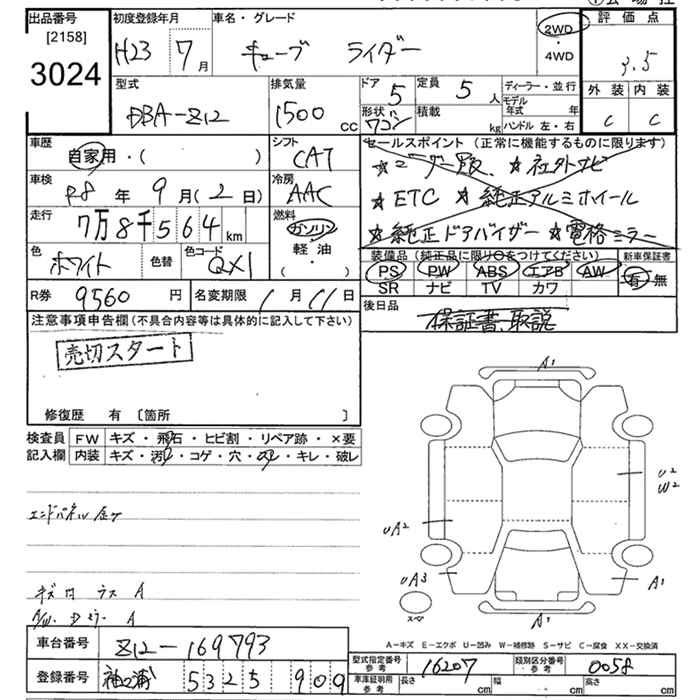 出品番号
[2158]
3024
初度登録年月
H23 7月
車名・グレード
キューブ ライダー
2WD
・
4WD
評価点
3.5
外装 内装
C C
型式
DBA-Z12
排気量
1500 cc
ドア 5
定員 5 人
形状 ワゴン
積載 kg
ディーラー・並行
モデル年式 年
ハンドル 左・右
車歴
自家用・( )
シフト
CAT
車検
R8年 9月(2日)
冷房
AAC
走行
7万8千564 km
燃料
ガソリン
軽・油
・
( )
色
ホワイト
色替
色コード
QX1
R券 9560 円
名変期限 1月11日
セールスポイント (正常に機能するものに限ります)
★ ★社外ナビ
★ETC ★純正アルミホイール
★純正ドアバイザー ★電格ミラー
装備品 (純正品に限り○をつけてください)
新車保証書
PS PW ABS エアB AW
有・無
SR ナビ TV カワ
後日品
保証書、取説
注意事項申告欄(不具合内容等は具体的に記入して下さい)
売切スタート
修復歴 有 〔箇所 〕
検査員
記入欄
FW キズ・飛石・ヒビ割・リペア跡・×要
内装 キズ・汚れ・コゲ・穴・スレ・キレ・破レ
エンドパネル
A1
U2
W2
UA2
UA3
A1
A1
スペア
A
A
A-キズ E-エクボ U-凹み W-補修跡 S-サビ C-腐食 XX-交換済
車台番号 Z12-169793
登録番号 袖ヶ浦 532 909
型式指定番号
参考
16207
類別区分番号
参考
0058
車庫証明用
参考
長さ cm 幅 cm 高さ cm